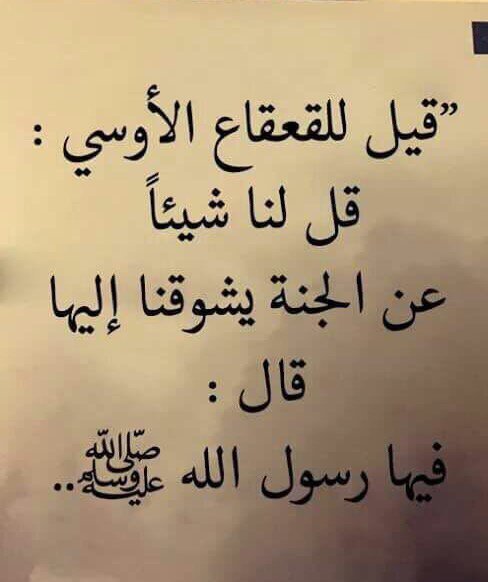 ”قيل للقعقاع الأوسي :
قل لنا شيئاً
عن الجنة يشوقنا إليها
قال :
فيها رسول الله ﷺ..